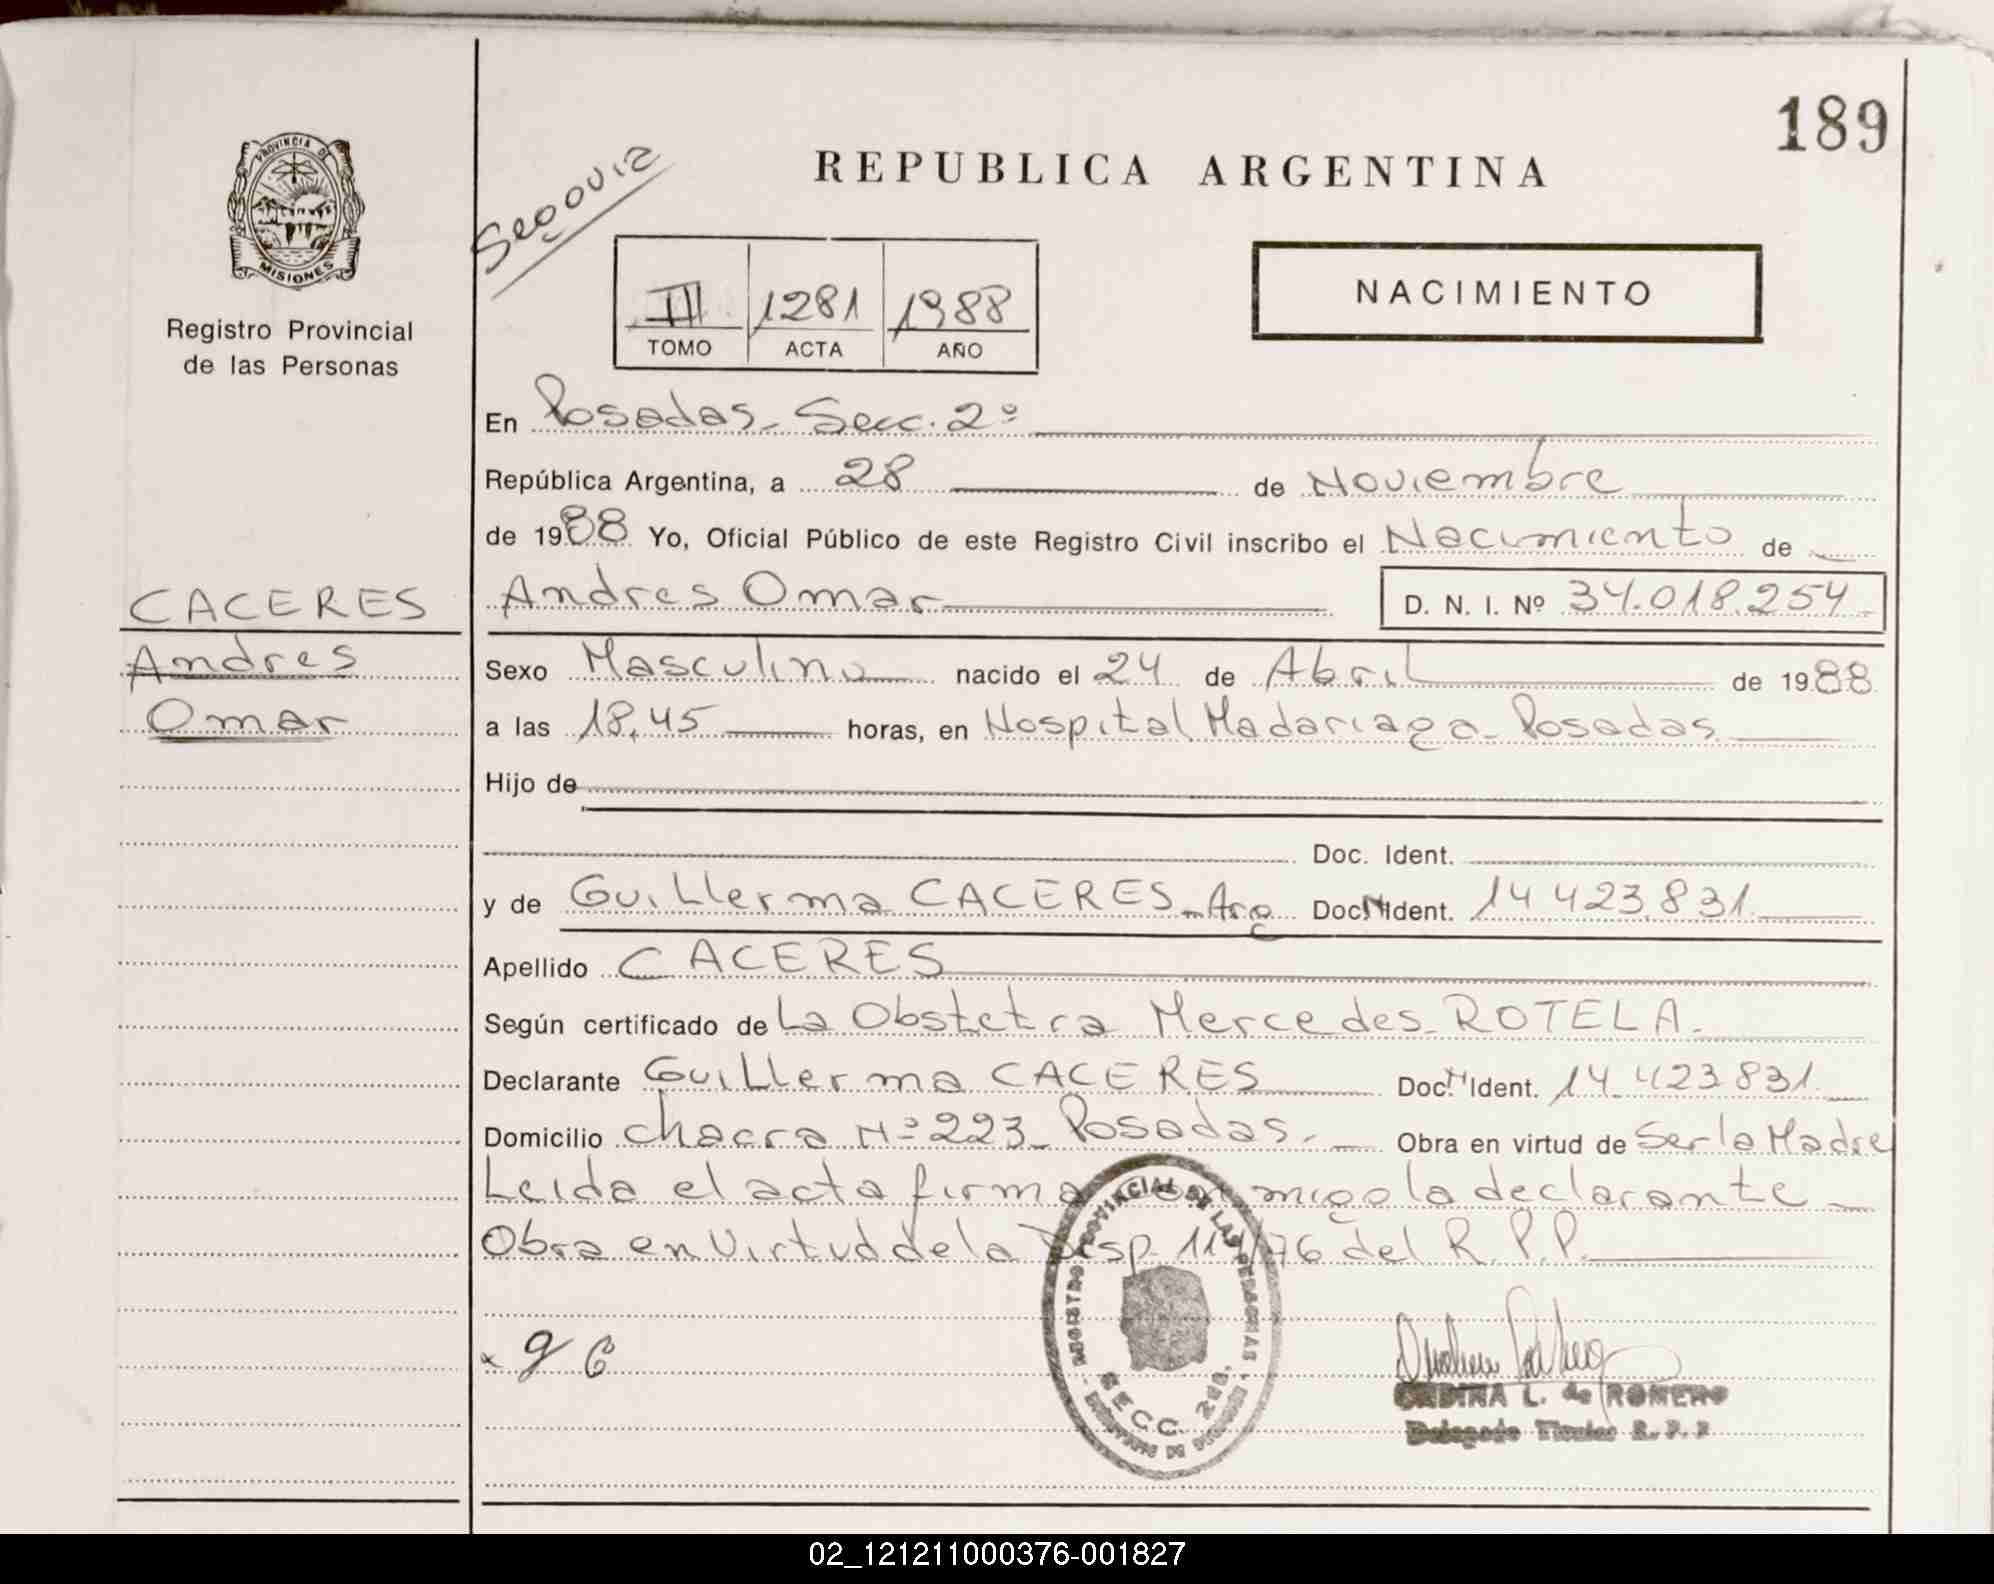 189
PROVINCIA DE
MISIONES
Registro Provincial
de las Personas
Segovia
REPUBLICA ARGENTINA
III 1281 1988
TOMO ACTA AÑO
NACIMIENTO
En Posadas - Secc. 2º
República Argentina, a 28 de Noviembre
de 1988 Yo, Oficial Público de este Registro Civil inscribo el Nacimiento de
CACERES
Andres
Omar
Andres Omar D. N. I. Nº 34.018.254
Sexo Masculino nacido el 24 de Abril de 1988
a las 18,45 horas, en Hospital Madariaga - Posadas
Hijo de
Doc. Ident.
y de Guillerma CACERES - Arg Doc. N Ident. 14 423.831
Apellido CACERES
Según certificado de La Obstetra Mercedes ROTELA.
Declarante Guillerma CACERES Doc. N Ident. 14.423831
Domicilio chacra Nº 223 - Posadas. Obra en virtud de Ser la Madre
Leida el acta firma conmigo la declarante
Obra en Virtud de la Disp. /76 del R.P.P.
REGISTRO PROVINCIAL DE LAS PERSONAS
SECC. 2da.
x g C
L. de ROMERO
Delegado Titular R. P. P
02_121211000376-001827